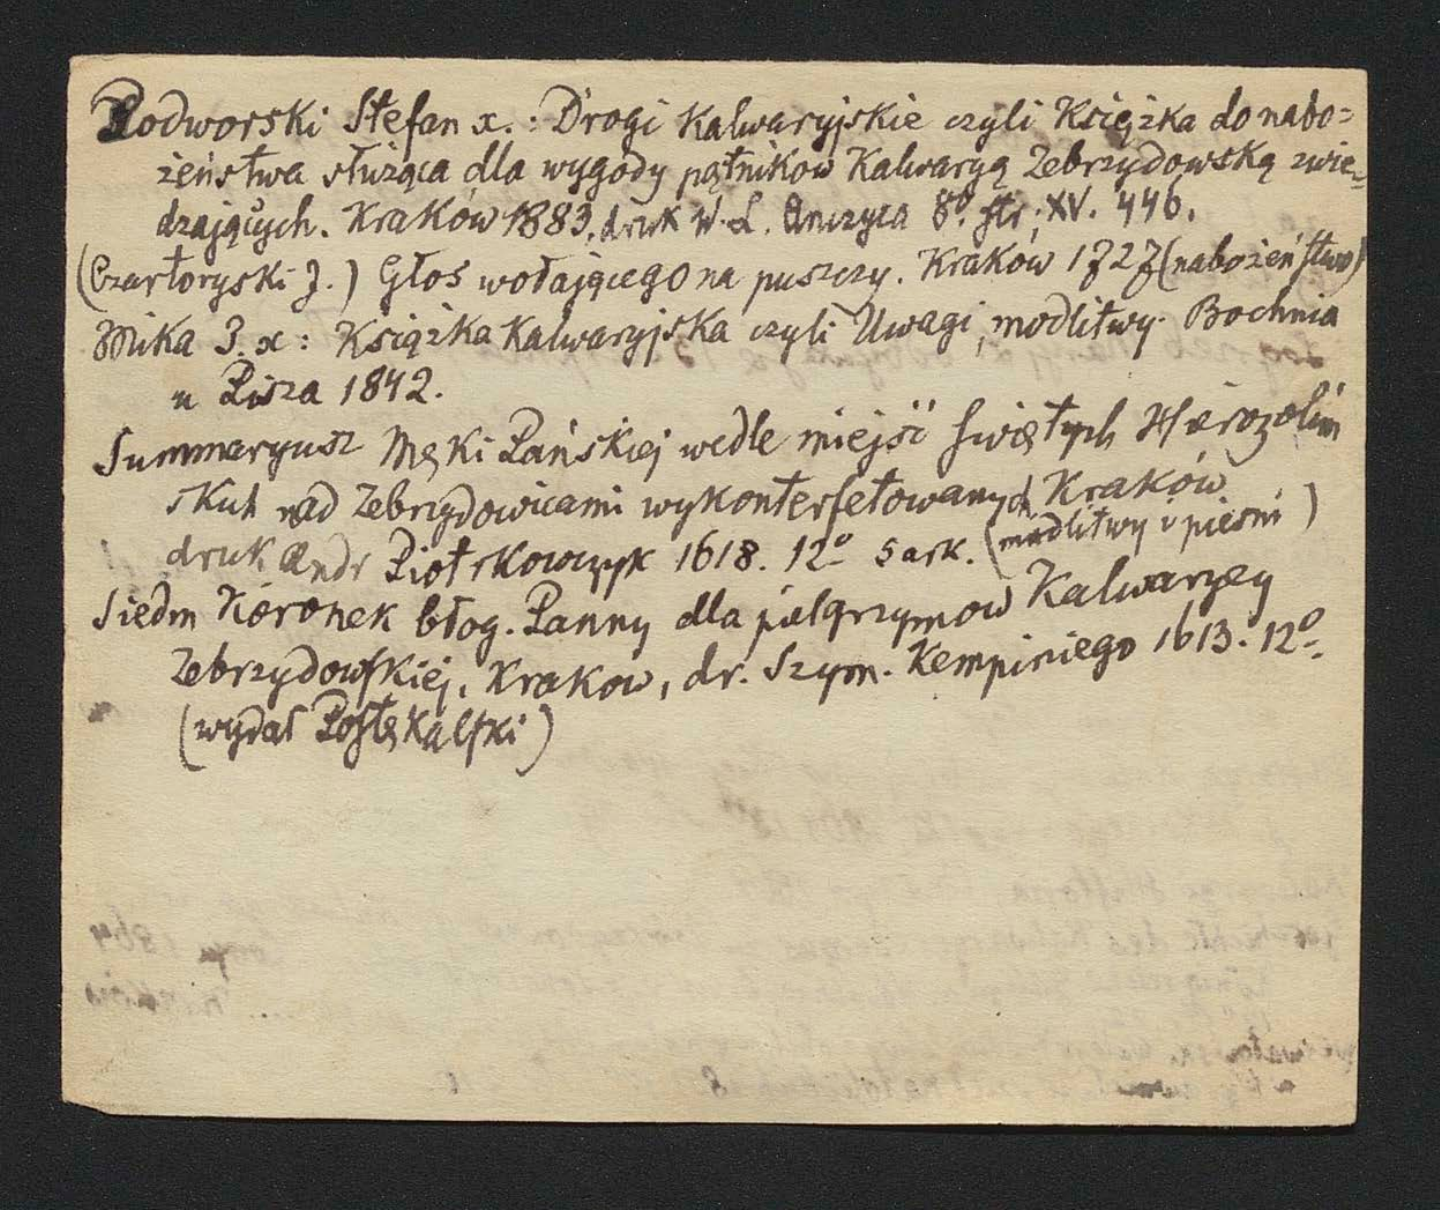 Podworski Stefan x. : Drogi Kalwaryjskie czyli Książka do nabo=
żeństwa służąca dla wygody pątnikow Kalwaryą Zebrzydowską zwie=
dzających. Kraków 1883. druk W. L. Anczyca 8º. str. XV. 446.
(Czartoryski J.) Głos wołającego na puszczy. Kraków 1727 (nabożeństwo)
Mika J. x : Książka Kalwaryjska czyli Uwagi, modlitwy. Bochnia
u Pisza 1842.
Summaryusz Męki Pańskiej wedle miejść świętych Hierozolim
skich nad Zebrzydowicami wykonterfetowanych Kraków
druk Andr Piotrkowczyk 1618. 12º 5 ark. (modlitwy i pieśni)
Siedm Koronek błog. Panny dla pielgrzymow Kalwaryey
Zebrzydowskiej, Krakow, dr. Szym. Kempiniego 1613. 12º.
(wydał Postękalski)